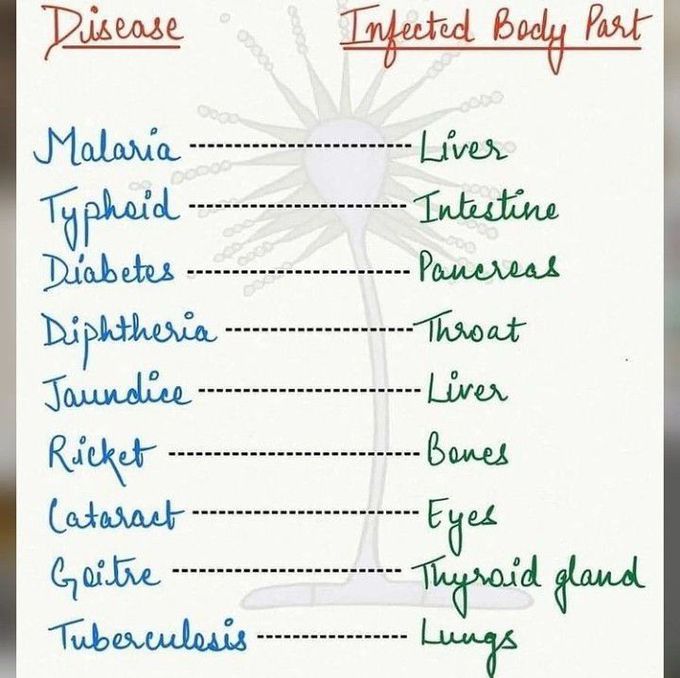 Disease Infected Body Part
Malaria ---------------------- Liver
Typhoid ---------------------- Intestine
Diabetes ---------------------- Pancreas
Diphtheria ------------------ Throat
Jaundice ---------------------- Liver
Ricket ------------------------- Bones
Cataract ---------------------- Eyes
Goitre ----------------------- Thyroid gland
Tuberculosis --------------- Lungs